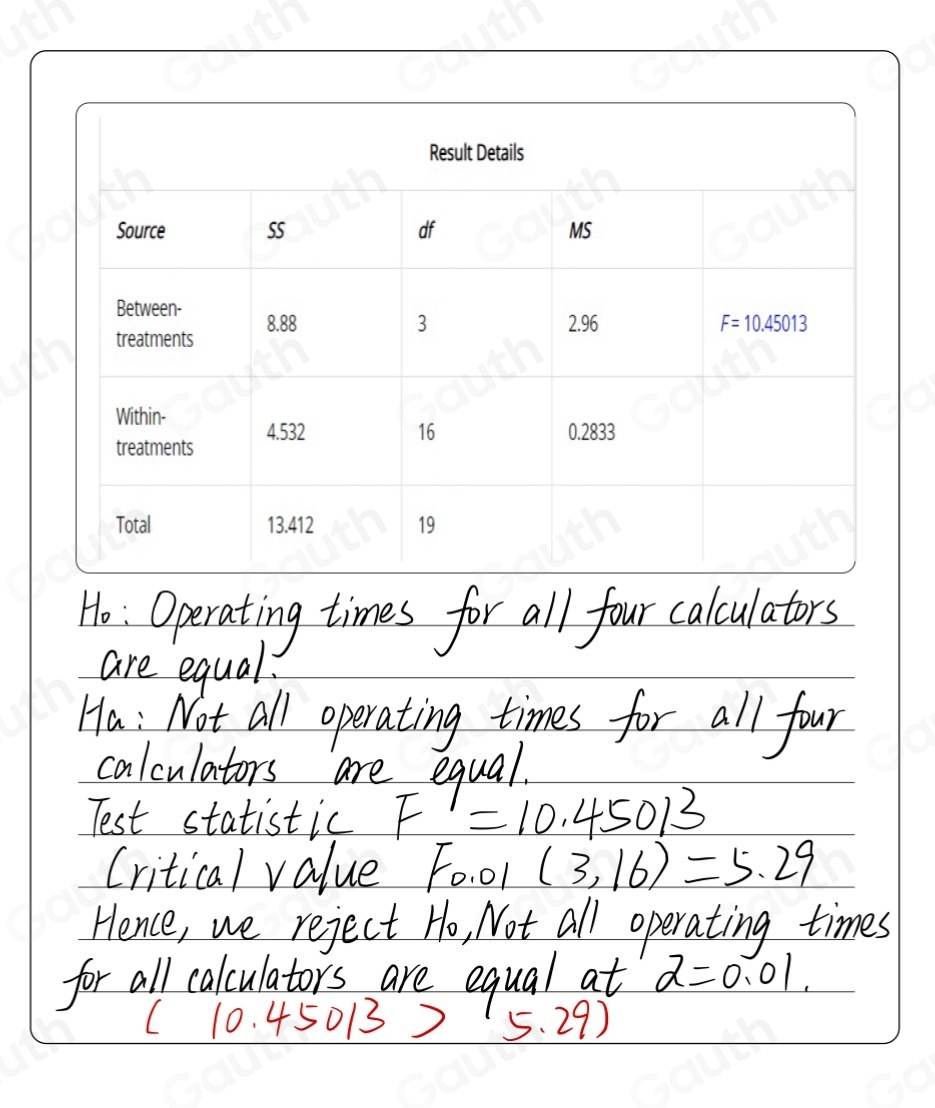 Result Details
Source SS df MS
Between-
treatments 8.88 3 2.96 F= 10.45013
Within-
treatments 4.532 16 0.2833
Total 13.412 19
Ho: Operating times for all four calculators
are equal.
Ha: Not all operating times for all four
calculators are equal.
Test statistic F = 10.45013
Critical value F0.01 (3,16) = 5.29
Hence, we reject Ho, Not all operating times
for all calculators are equal at α=0.01.
( 10.45013 > 5.29)
Gauth